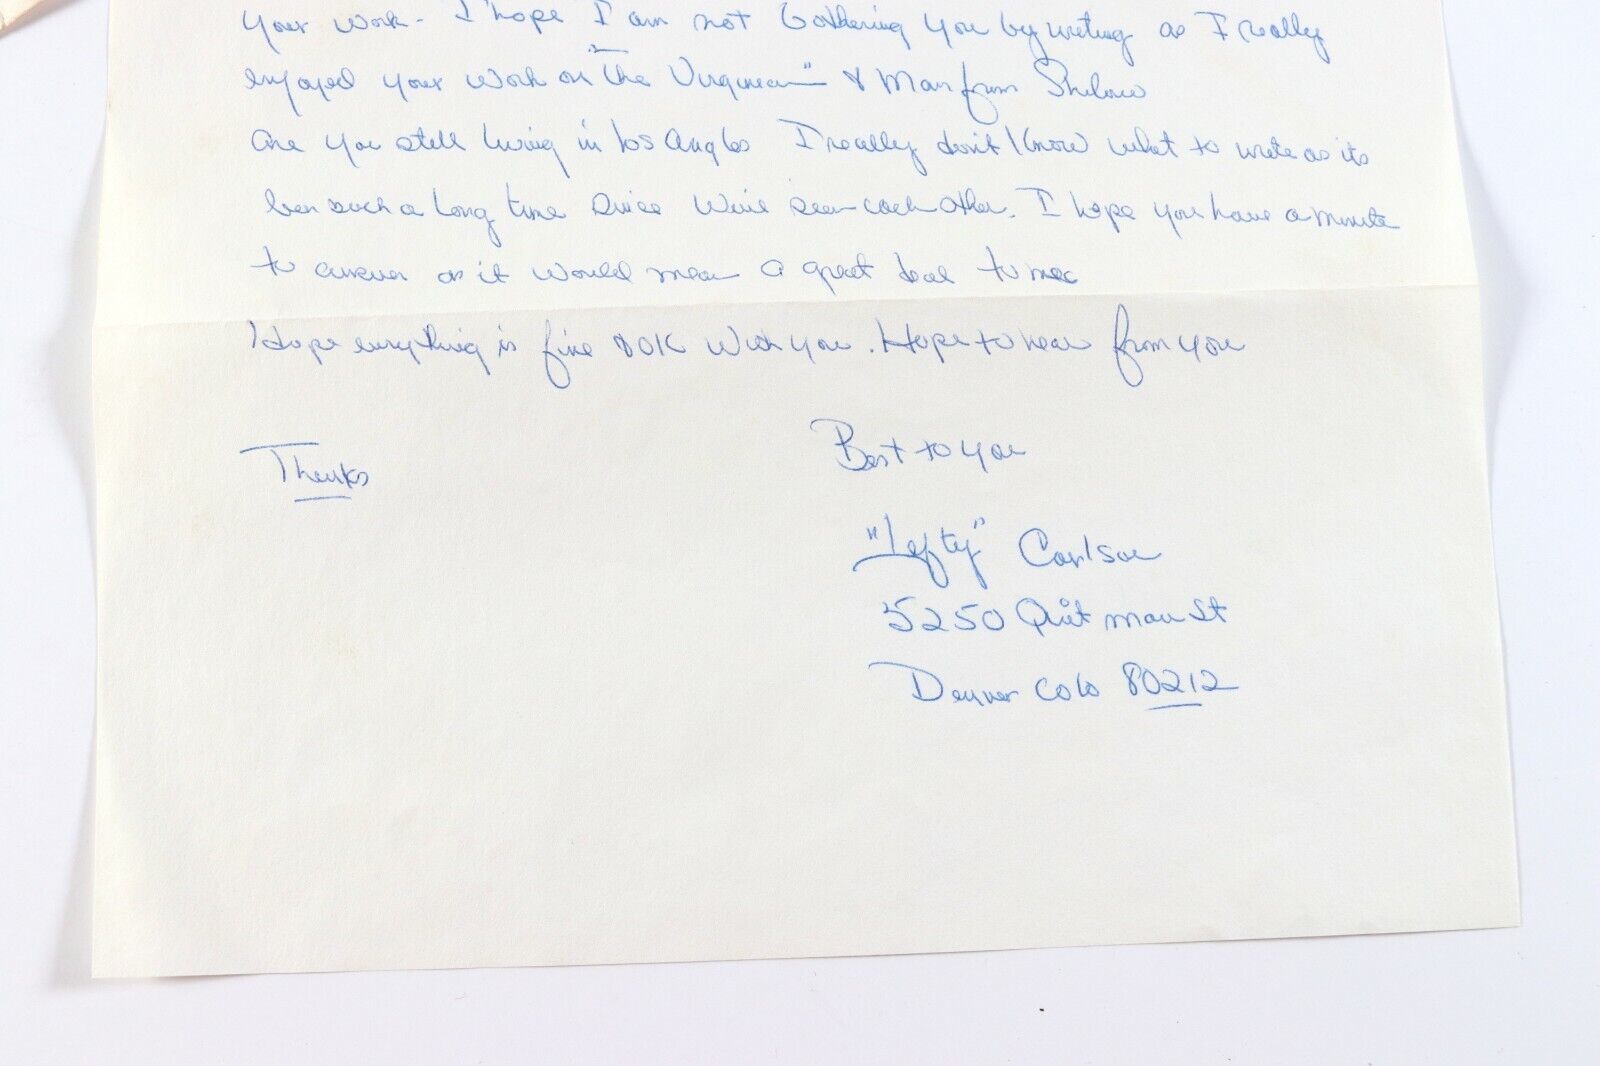 your work - I hope I am not bothering you by writing as I really
enjoyed your work on "The Virginian" & Man from Shilow
are you still living in Los Angles I really don't know what to write as its
been such a long time since We've seen each other. I hope you have a minute
to answer as it would mean a great deal to me
Hope everything is fine & OK With you. Hope to hear from you
Thanks
Best to you
"Lefty" Carlson
5250 Quitman St
Denver Colo 80212